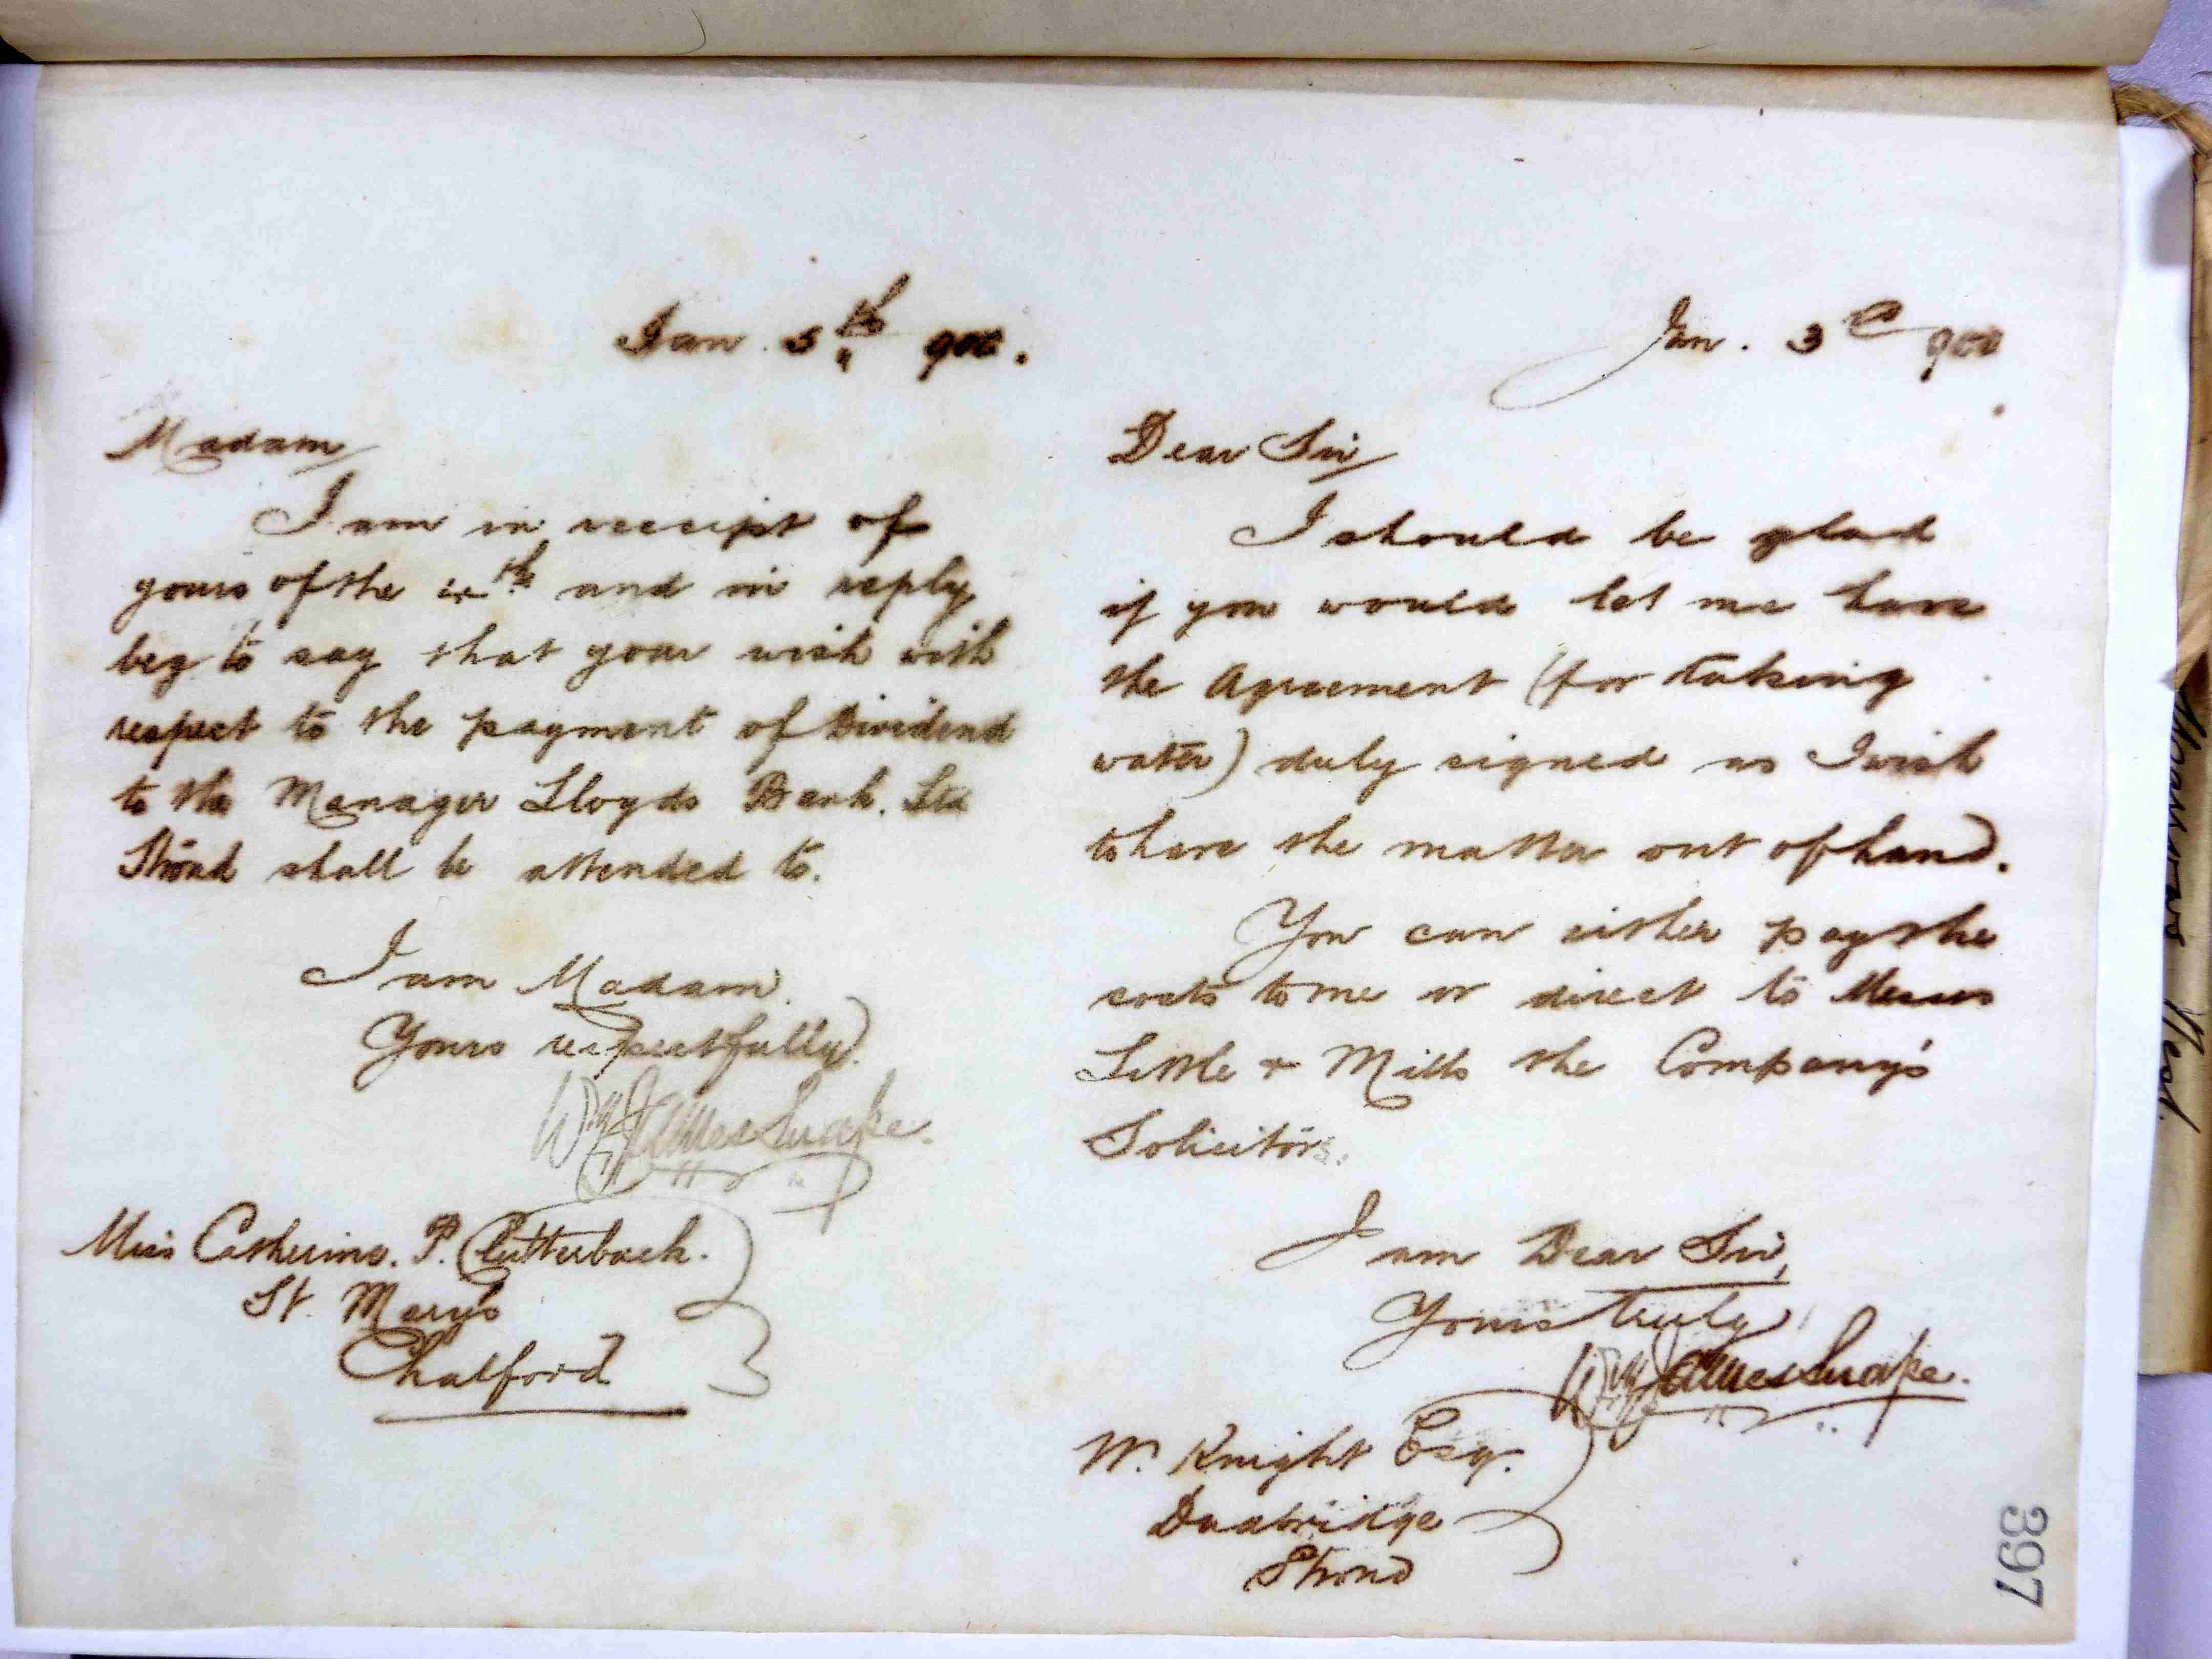 Jan. 5th 900.
Madam
I am in receipt of
yours of the 4th and in reply
beg to say that your wish with
respect to the payment of Dividend
to the Manager Lloyds Bank. Ltd
Stroud shall be attended to.
I am Madam.
Yours respectfully.
Wm James Snape.
Miss Catherine. P. Clutterbuck.
St. Mary's
Chalford
Jan. 3d 900
Dear Sir
I should be glad
if you would let me have
the Agreement (for taking
water) duly signed as I wish
to have the matter out of hand.
You can either pay the
costs to me or direct to Messrs
Little & Mills the Company's
Solicitors.
I am Dear Sir,
Yours truly
Wm James Snape.
W. Knight Esq.
Dudbridge
Stroud
397